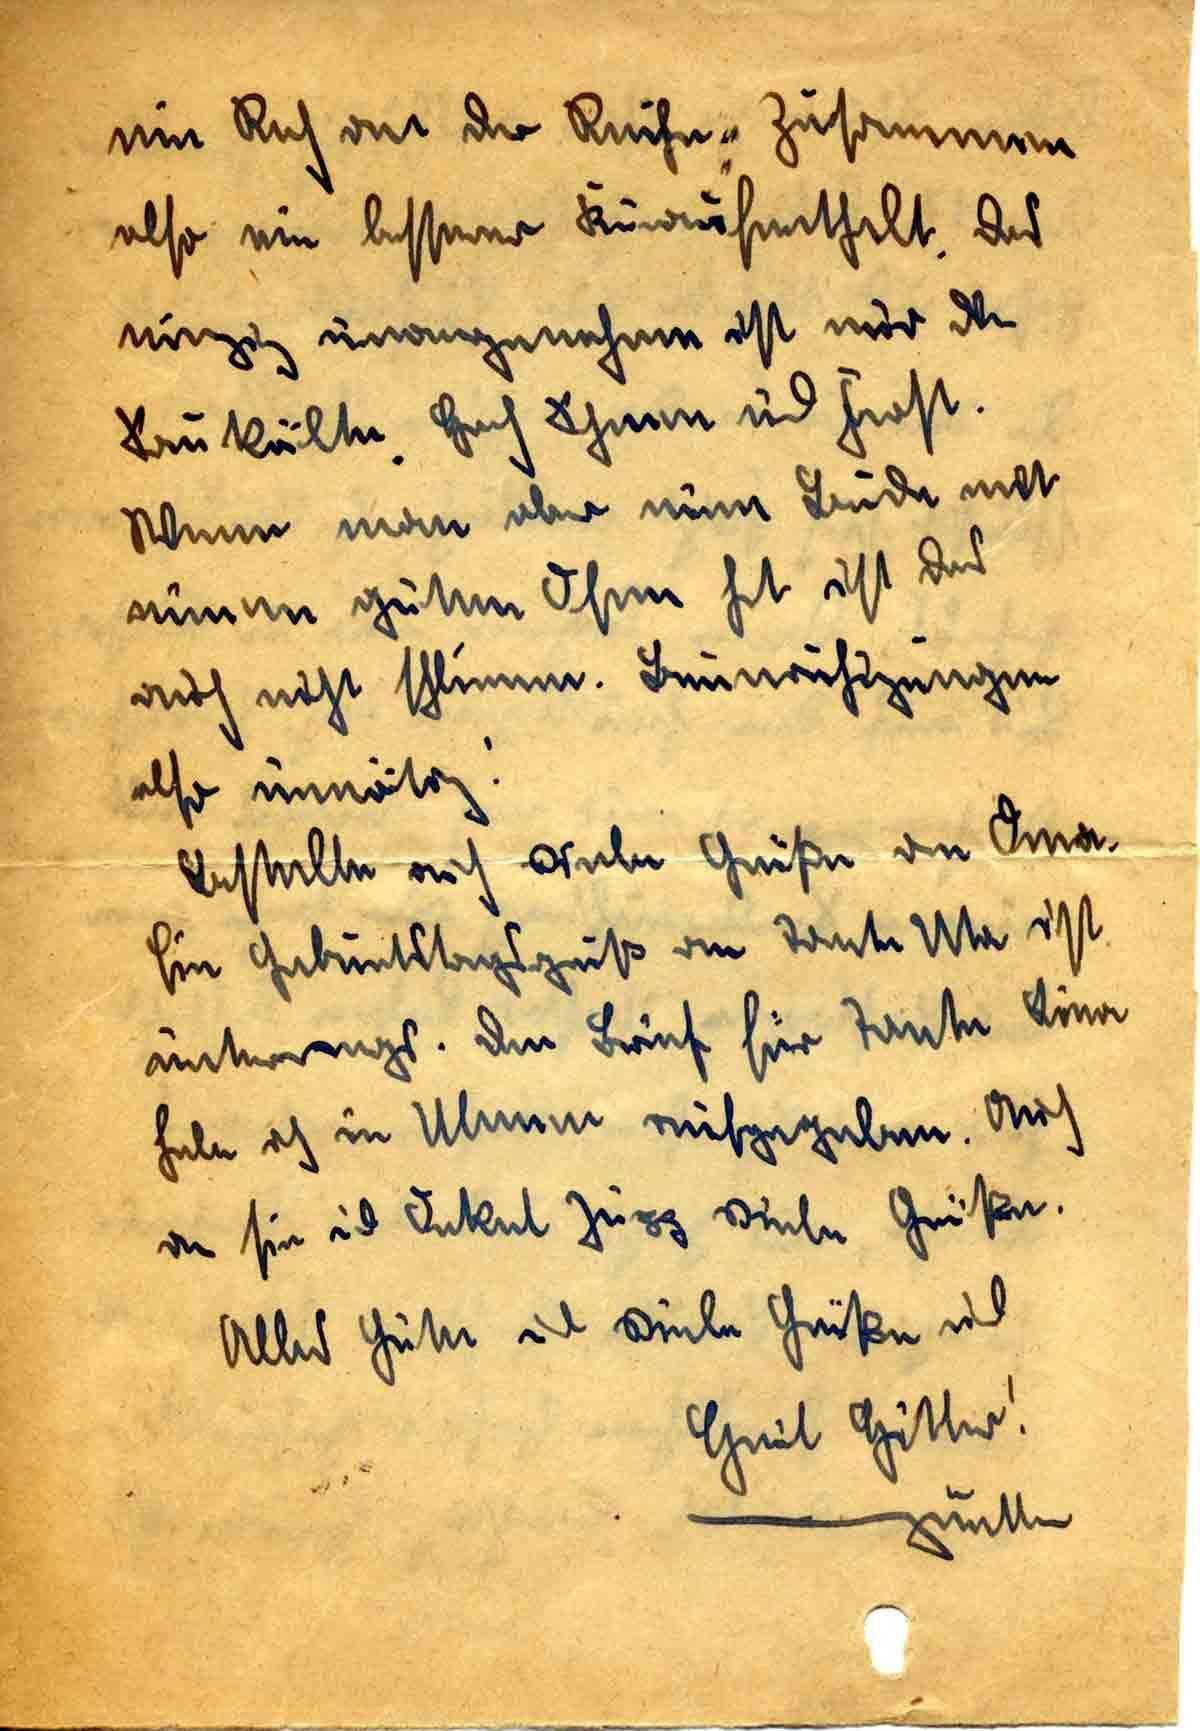 ein Reh an der Reihe." Zusammen
also ein besserer Kuraufenthalt. Das
einzig unangenehme ist mir die
Saukälte. Hoch Schnee und Frost.
Wenn man aber eine Bude mit
einem guten Ofen hat ist das
auch nicht schlimm. Beunruhigungen
also unnötig!
Bestelle auch viele Grüße an Oma.
Ein Geburtstagsgruß an Tante Uta ist
unterwegs. Den Brief für Tante Lina
habe ich in aufgegeben. Auch
an sie und Onkel viele Grüße.
Alles Gute und viele Grüße und
Heil Hitler!